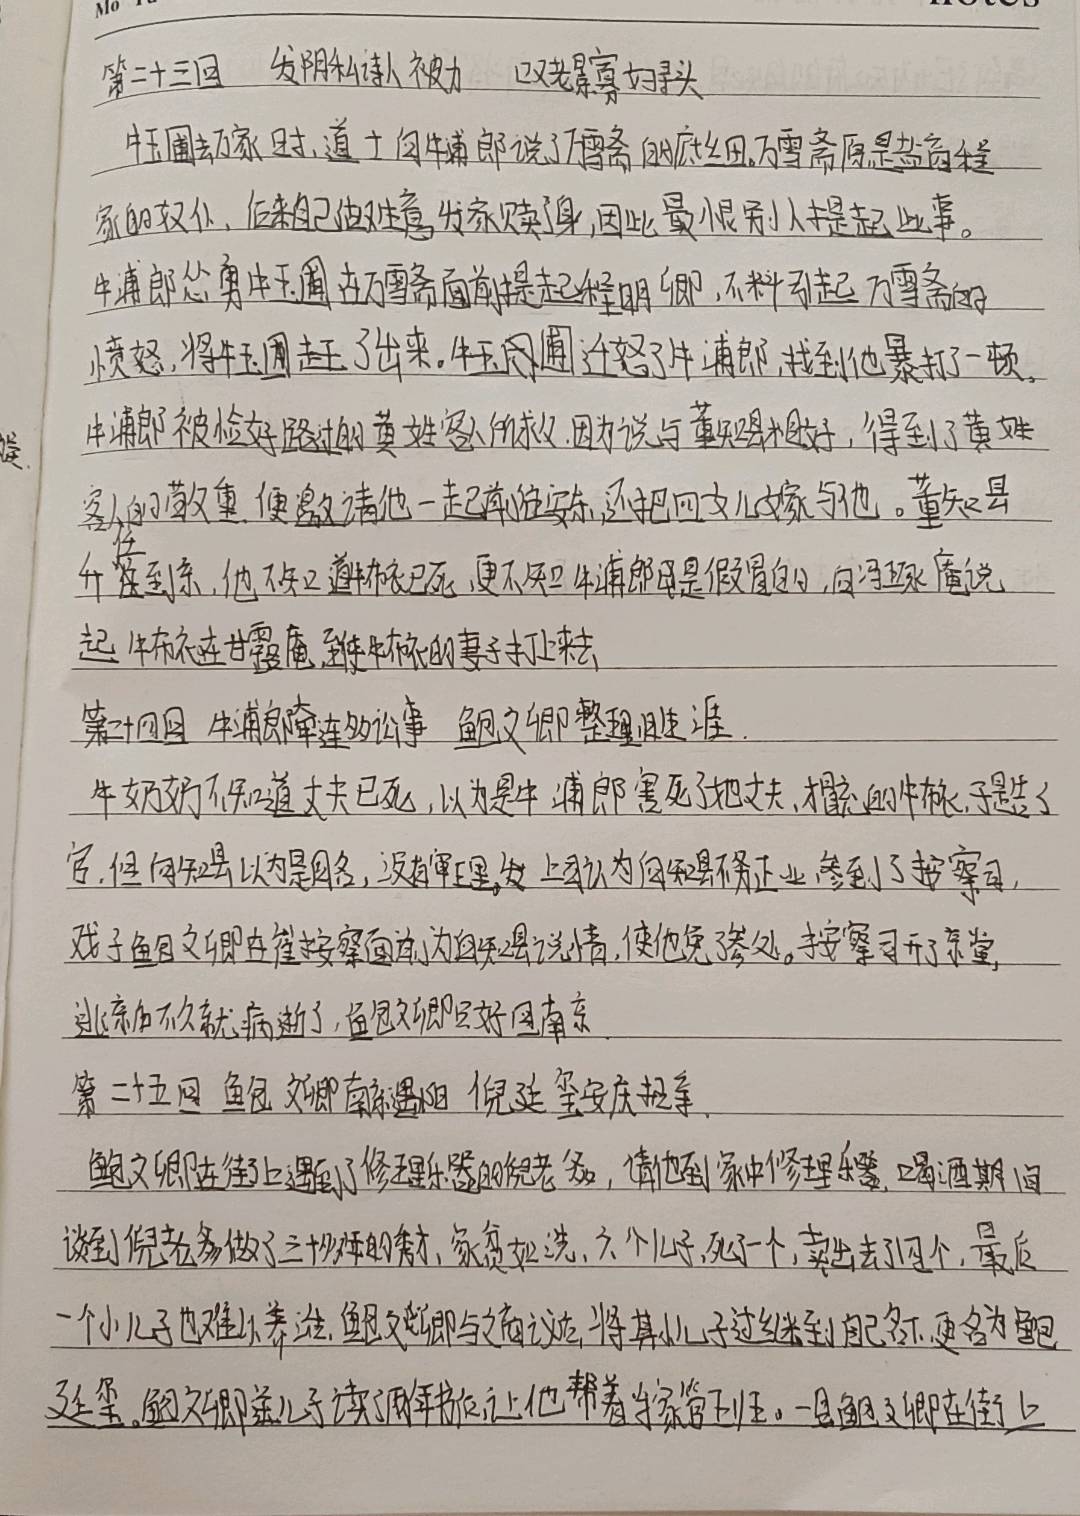 Mo Tu
notes
第二十三回 发阴私诗人被打 叹老景寡妇寻夫
牛玉圃去万家时,道士向牛浦郎说了万雪斋的底细。万雪斋原是盐商程
家的奴仆,后来自己做生意发家赎了身,因此最恨别人提起此事。
牛浦郎怂勇牛玉圃在万雪斋面前提起程明卿,不料引起万雪斋的
愤怒,将牛玉圃赶了出来。牛玉圃迁怒了牛浦郎,找到他暴打了一顿。
牛浦郎被恰好路过的黄姓客人所救,因为说与董知县相好,得到了黄姓
客人的敬重,便邀请他一起前往安东,还把四女儿嫁与他。董知县
升任到京,他不知道牛布衣已死,更不知牛浦郎是假冒的,向冯琢庵说
起牛布衣在甘露庵,致使牛布衣的妻子打上来去
第二十四回 牛浦郎牵连多讼事 鲍文卿整理旧生涯.
牛奶奶不知道丈夫已死,以为是牛浦郎害死了她丈夫,才冒充的牛布衣,于是告了
官.但向知县以为是同名,没有审理,上司认为向知县不务正业,参到了按察司,
戏子鲍文卿在崔按察面前为向知县说情,使他免了参处。按察司升了京堂,
进京后不久就病逝了,鲍文卿只好回南京
第二十五回 鲍文卿南京遇旧 倪廷玺安庆招亲.
鲍文卿在街上遇到了修理乐器的倪老爹,请他到家中修理乐器,喝酒期间
谈到倪老爹做了三十少年的秀才,家贫如洗,六个儿子,死了一个,卖出去了四个,最后
一个小儿子也难以养活.鲍文卿与之商议,将其小儿子过继到自己名下,更名为鲍
廷玺。鲍文卿送儿子读了两年书后,让他帮着当家管戏班。一日鲍文卿在街上